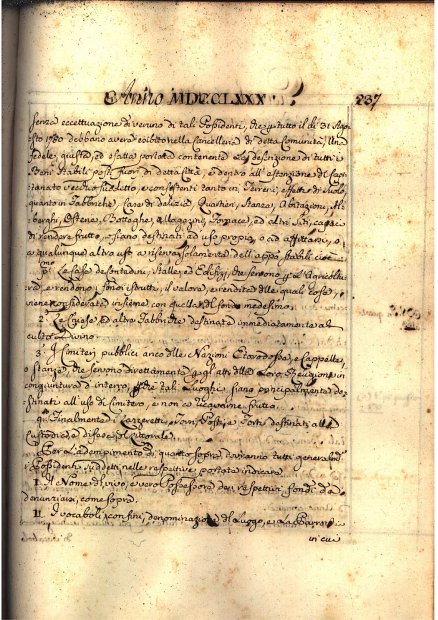 Anno MDCCLXXX
237
senza eccettuazione di veruno di tali Possidenti, che a tutto il dì 31 Ago
sto 1780 debbano avere esibito nella Cancelleria di detta Comunità, Una
fedele, giusta, ed esatta portata contenente la descrizione di tutti i
Beni stabili posti fuori di detta Città, e dentro all'estenzione di Capi
tanato vecchio suddetto, e consistenti tanto in Terreni, effetti di suolo,
quanto in Fabbriche, Case di delizia, Quartieri, Stanze, Abitazioni, Al
berghi, Osterie, Botteghe, Magazzini, Fornace, ed altri Siti, capaci
di rendere frutto, o siano destinati ad uso proprio, o ad affittarsi, o
a qualunque altro uso a riserva solamente dell' appo stabili cioè
p.o Le case da Contadini, Stalle, ed Edifizj, che servono p l'Agricoltu
ra, e rendono i fondi istrutti, il valore, e rendita delle quali cose,
viene considerata insieme con quella del fondo medesimo,
2.o Le Chiese, ed altre Fabbriche destinate immediatamente al
culto Divino.
3.o I Cimiteri pubblici anco delle Nazioni Eterodosse, e Cappelle,
o stanze, che servono direttamente agli atti della Loro Religione in
congiuntura d'interro, tali Luoghi siano principalmente de
stinati all' uso di Cimitero, e non a ricavarne frutto.
4.o Finalmente i Lazzeretti, Posti, e Forti destinati alla
Custodia, e difesa del Littorale.
Per l'adempimento di quanto sopra dovranno tutti generalm.
i Possidenti suddetti nelle respettive portate indicare
I. Il Nome di vivo, e vero Possessore dei respettivi fondi da
denunziarsi, come sopra.
II. I vocaboli, confini, denominazione del Luogo, e La Parrocchia
in cui